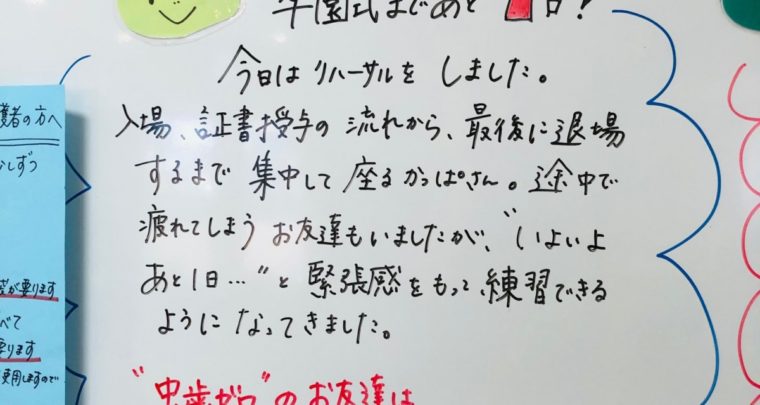 卒園式まであと1日!
今日はリハーサルをしました。
入場、証書授与の流れから、最後に退場
するまで集中して座るかっぱさん。途中で
疲れてしまうお友達もいましたが、“いよいよ
あと1日…”と緊張感をもって練習できる
ようになってきました。
“虫歯ゼロ”のお友達は
護者の方へ
しずつ
が要ります
べて
要ります
使用しますので